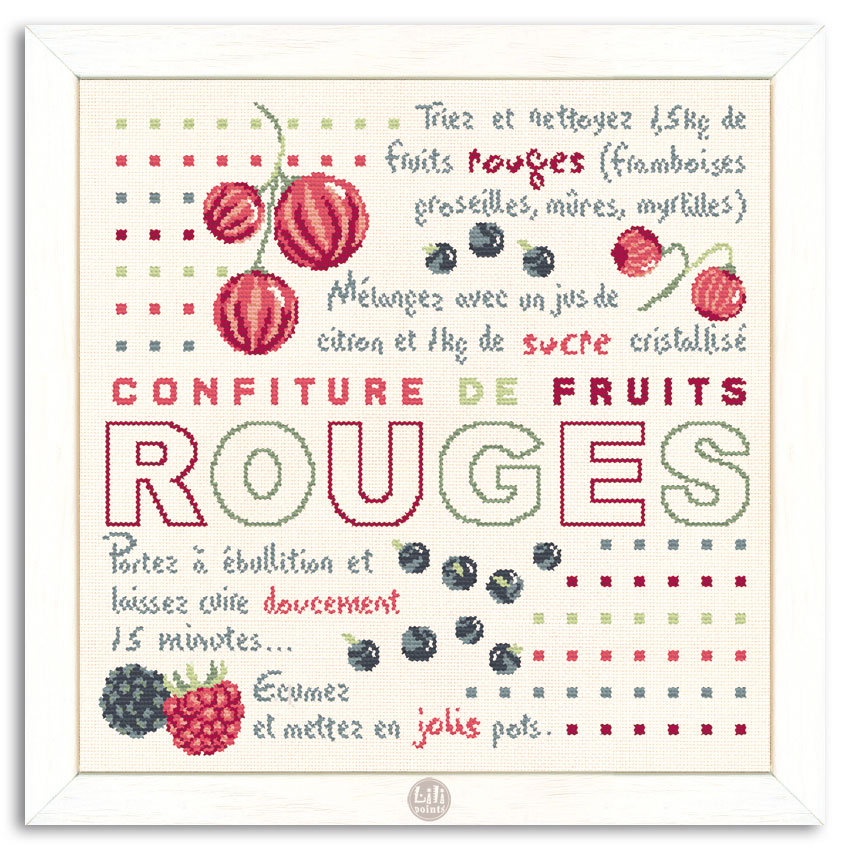 Triez et nettoyez 1,5kg de
fruits rouges (framboises
groseilles, mûres, myrtilles)
Mélangez avec un jus de
citron et 1kg de sucre cristallisé
CONFITURE DE FRUITS
ROUGES
Portez à ébullition et
laissez cuire doucement
15 minutes...
Ecumez
et mettez en jolis pots.
Lili
points